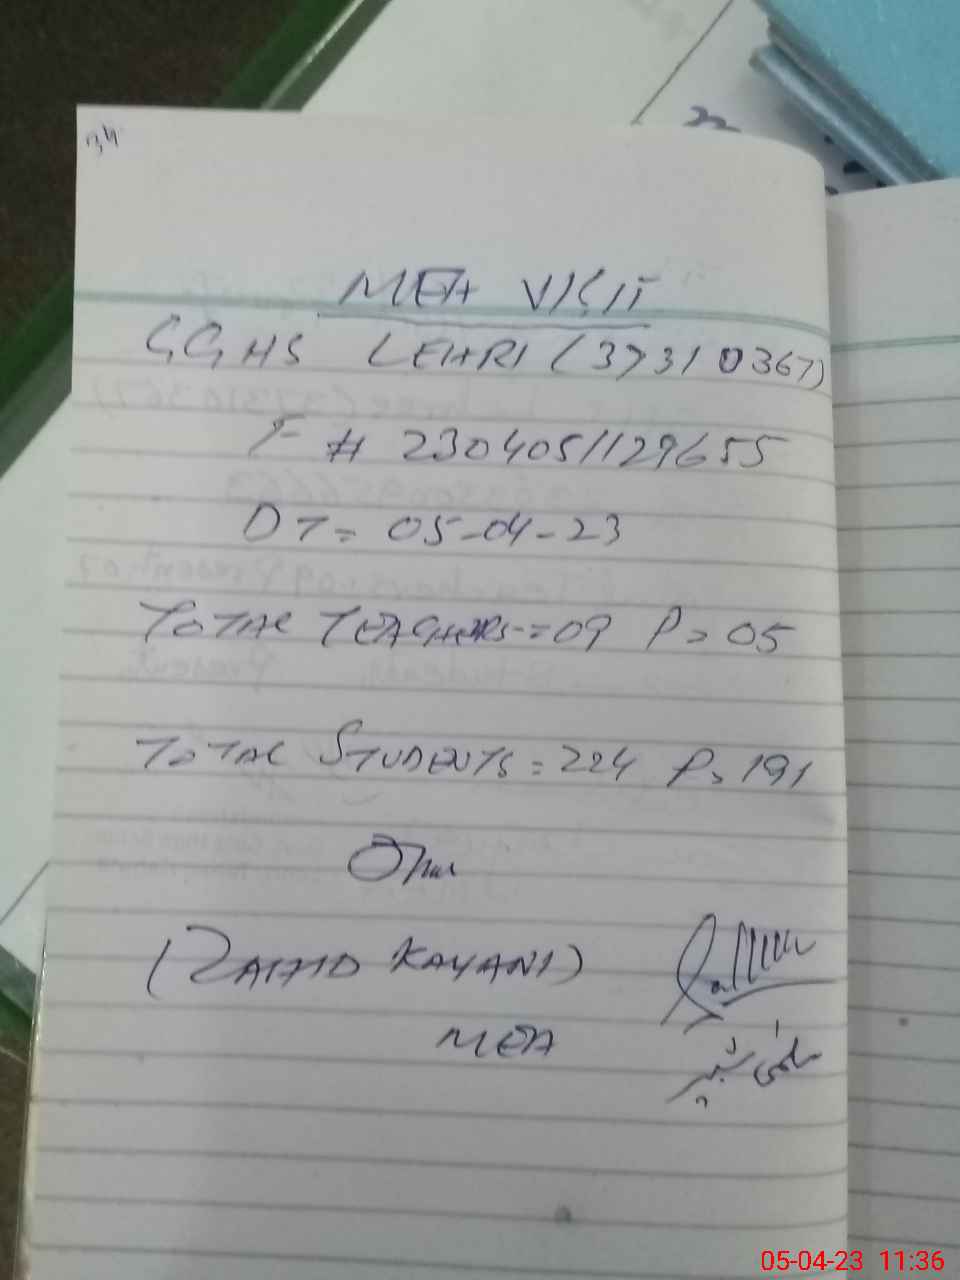 34
MEA VISIT
GGHS LEHRI (37310367)
F # 2304051129655
DT = 05-04-23
TOTAL TEACHERS = 09 P = 05
TOTAL STUDENTS = 224 P = 191
(ZAHID KAYANI)
MEA
05-04-23 11:36